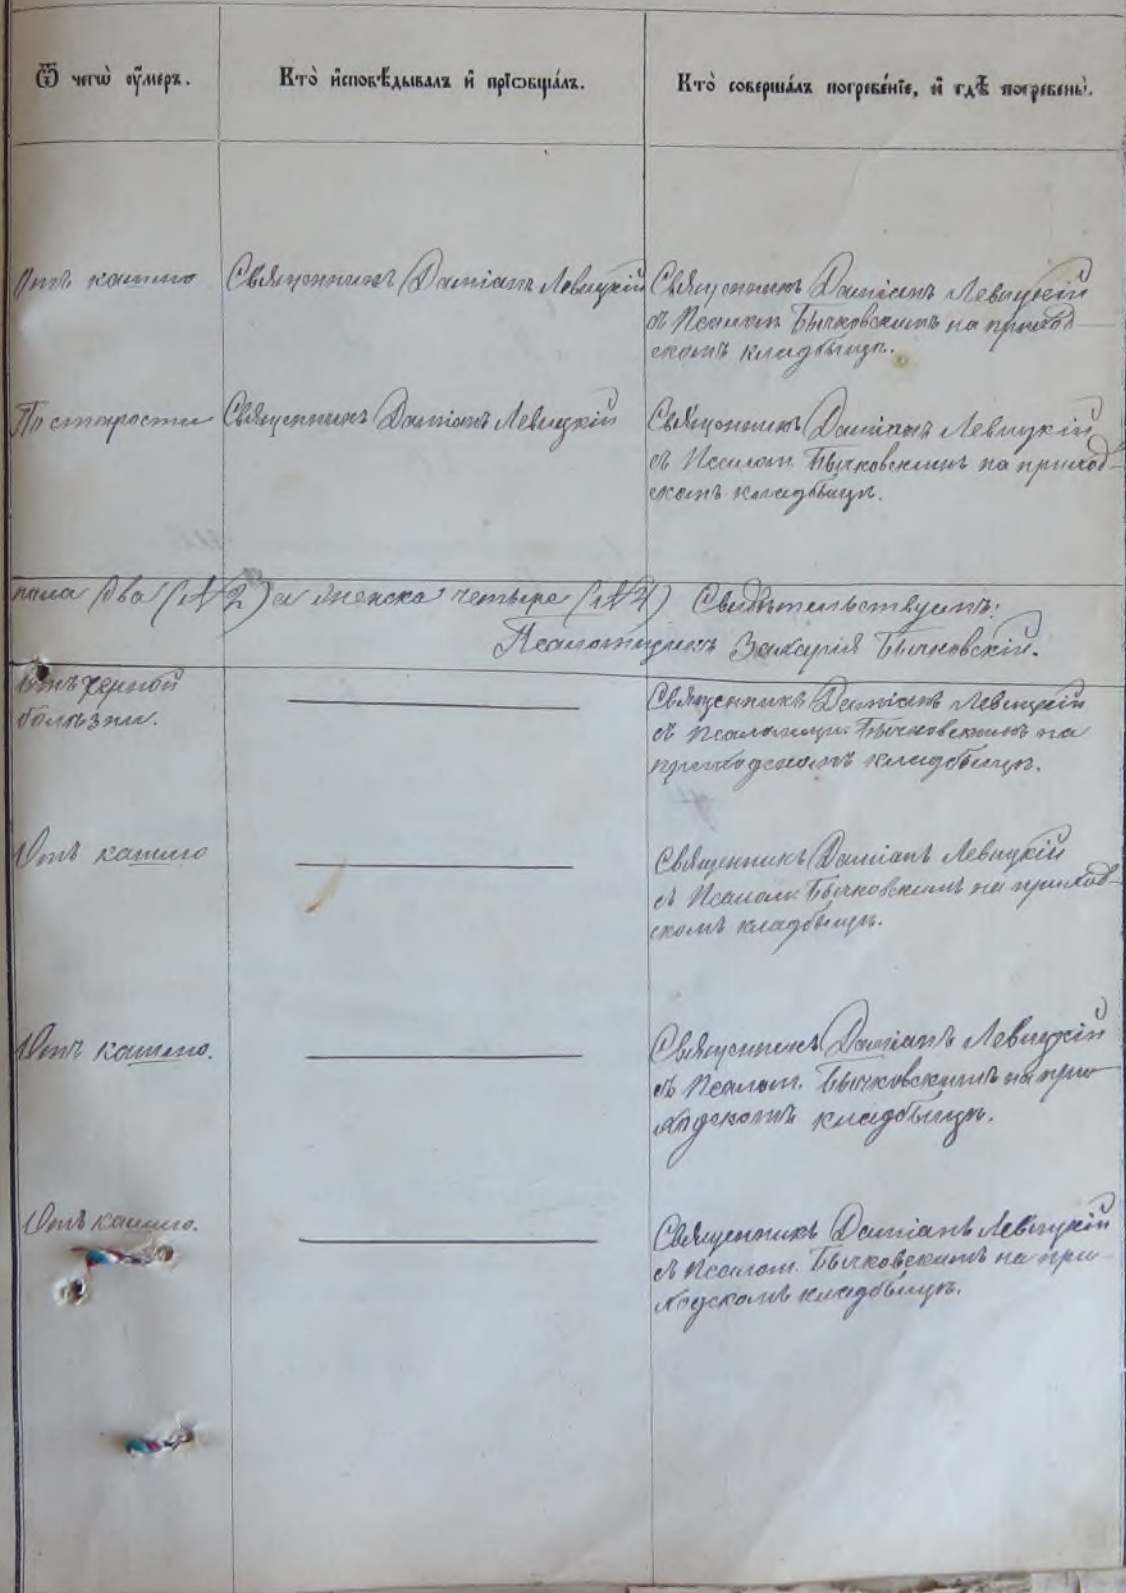 Ѿ чегѡ̀ ᲂу҆́меръ.
Кто̀ и҆сповѣ́дывалъ и҆ прїѡбща́лъ.
Кто̀ соверша́лъ погребе́нїе, и҆ гдѣ̀ погребены̀.
Отъ кашлю
Священникъ Даміанъ Левицкій
Священникъ Даміанъ Левицкій
съ Псалом. Бычковскимъ на приход-
скомъ кладбыщѣ.
По старости
Священникъ Даміанъ Левицкій
Священникъ Даміанъ Левицкій
съ Псалом. Бычковскимъ на приход-
скомъ кладбыщѣ.
два (№ 2) а женска четыре (№ 4) Свидѣтельствуемъ:
Псаломщикъ Захарія Бычковскій.
Отъ черной
болѣзни.
Священникъ Даміанъ Левицкій
съ Псаломщ. Бычковскимъ на
приходскомъ кладбыщѣ.
Отъ кашлю
Священникъ Даміанъ Левицкій
съ Псалом. Бычковскимъ на приход-
скомъ кладбыщѣ.
Отъ кашлю.
Священникъ Даміанъ Левицкій
съ Псалом. Бычковскимъ на при-
ходскомъ кладбыщѣ.
Отъ кашлю.
Священникъ Даміанъ Левицкій
съ Псалом. Бычковскимъ на при-
ходскомъ кладбыщѣ.